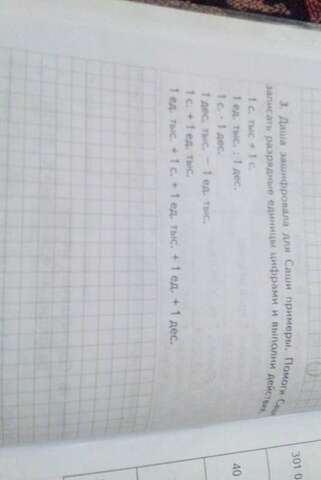 3. Даша зашифровала для Саши примеры. Помоги Саше
записать разрядные единицы цифрами и выполни действия.
1 с. тыс + 1 с.
1 ед. тыс. : 1 дес.
1 с. · 1 дес.
1 дес. тыс. − 1 ед. тыс.
1 с. + 1 ед. тыс.
1 ед. тыс. + 1 с. + 1 ед. тыс. + 1 ед. + 1 дес.
301 0
40